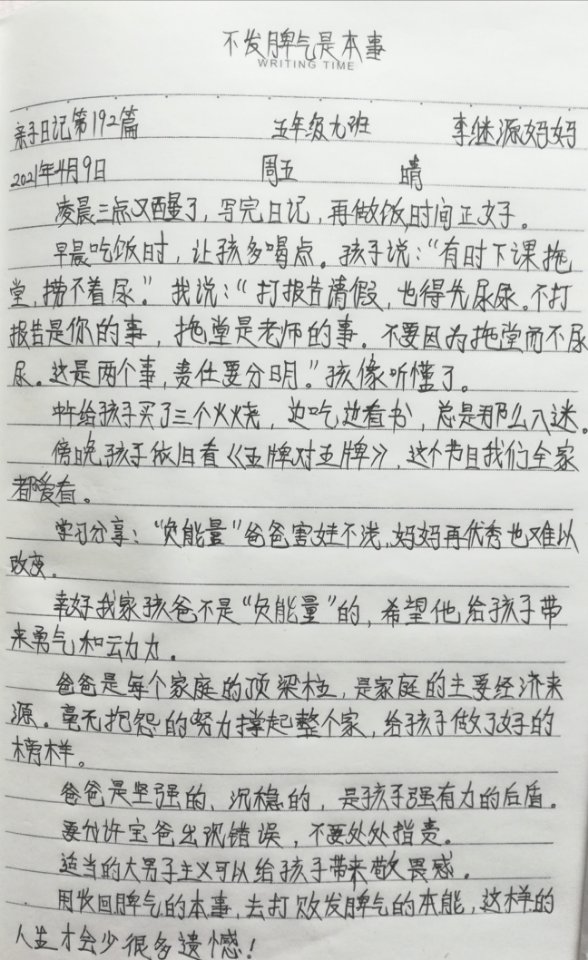 不发脾气是本事
WRITING TIME
亲子日记第192篇 五年级九班 李继源妈妈
2021年4月9日 周五 晴
凌晨三点又醒了，写完日记，再做饭，时间正好。
早晨吃饭时，让孩多喝点。孩子说：“有时下课拖
堂，捞不着尿。”我说：“打报告请假，也得先尿尿。不打
报告是你的事，拖堂是老师的事。不要因为拖堂而不尿
尿。这是两个事，责任要分明。”孩像听懂了。
中午给孩子买了三个火烧，边吃边看书，总是那么入迷。
傍晚孩子依旧看《王牌对王牌》，这个节目我们全家
都爱看。
学习分享：“负能量”爸爸害娃不浅，妈妈再优秀也难以
改变。
幸好我家孩爸不是“负能量”的，希望他给孩子带
来勇气和动力。
爸爸是每个家庭的顶梁柱，是家庭的主要经济来
源。毫无抱怨的努力撑起整个家，给孩子做了好的
榜样。
爸爸是坚强的、沉稳的，是孩子强有力的后盾。
要允许宝爸出现错误，不要处处指责。
适当的大男子主义可以给孩子带来敬畏感。
用收回脾气的本事，去打败发脾气的本能，这样的
人生才会少很多遗憾！